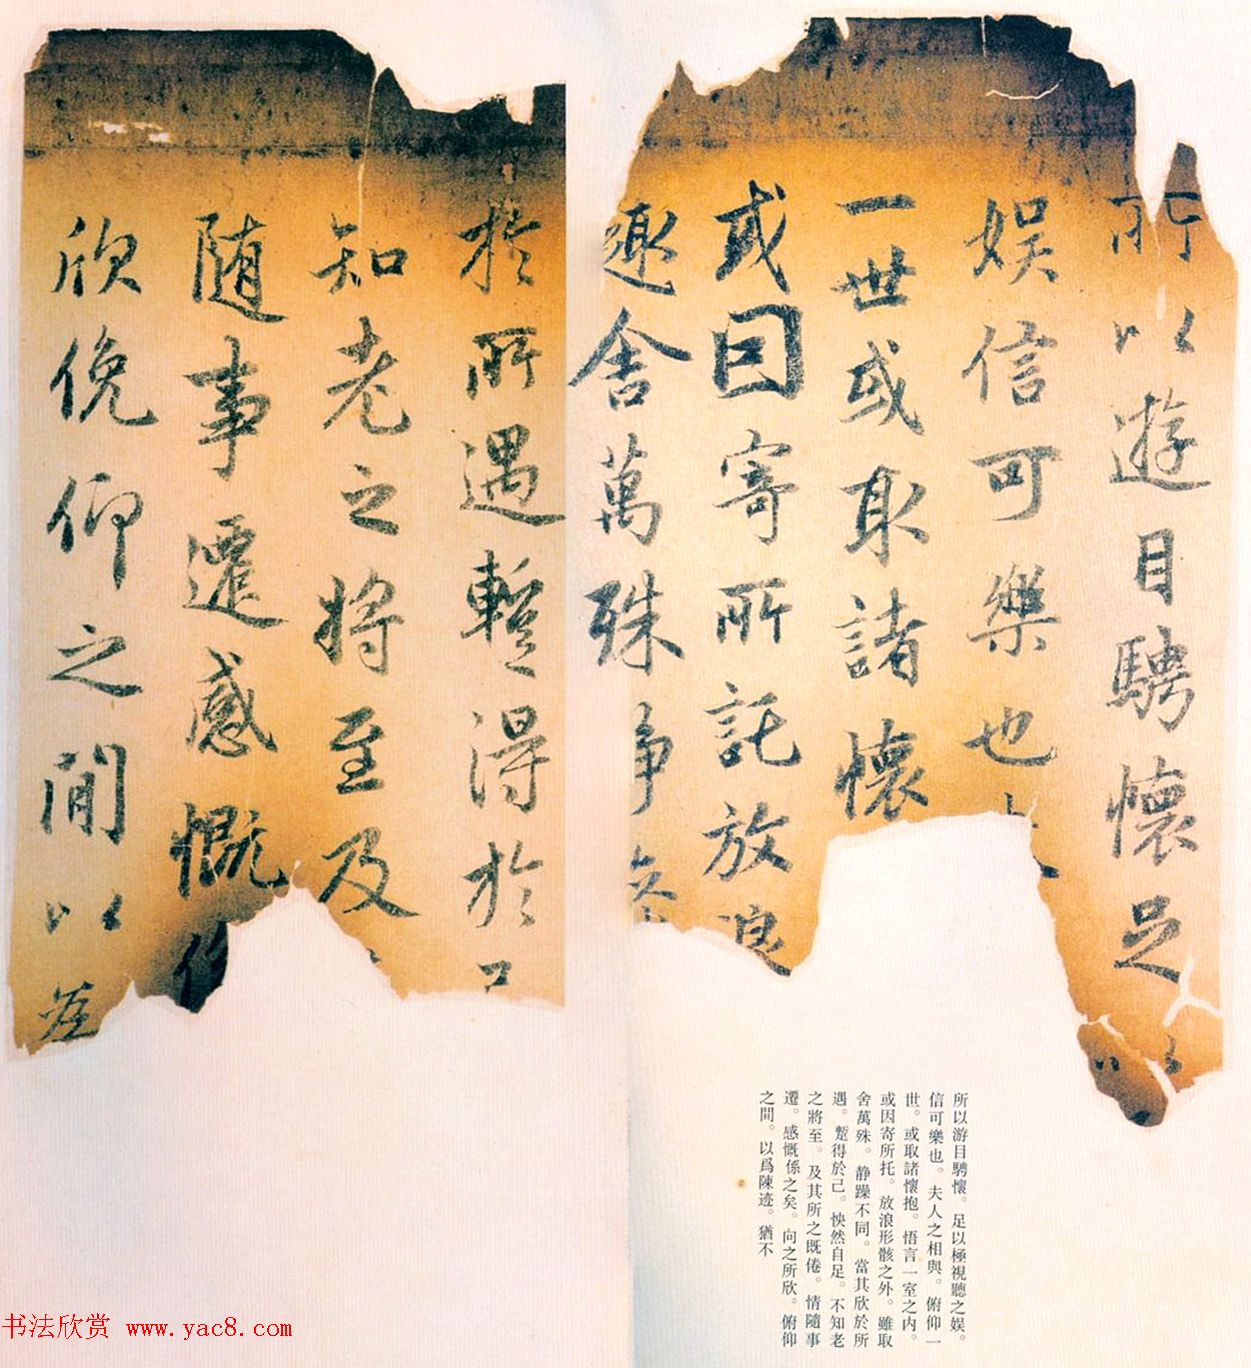 所以遊目騁懷足以
娱信可樂也
一世或取諸懷
或因寄所託放浪
趣舍萬殊静
於所遇蹔得於己
知老之将至及
随事遷感慨係
欣俛仰之閒以為
所以游目騁懷。足以極視聽之娱。
信可樂也。夫人之相與。俯仰一
世。或取諸懷抱。悟言一室之内。
或因寄所托。放浪形骸之外。雖取
舍萬殊。静躁不同。當其欣於所
遇。蹔得於己。怏然自足。不知老
之將至。及其所之既倦。情隨事
遷。感慨係之矣。向之所欣。俯仰
之間。以爲陳迹。猶不
书法欣赏 www.yac8.com